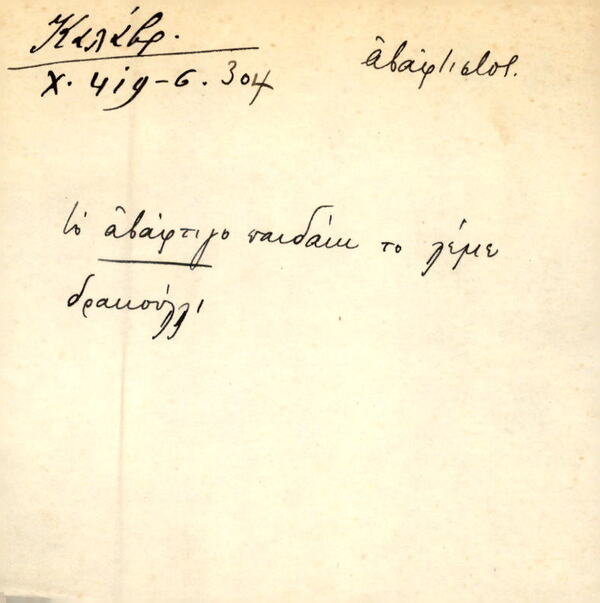 Καλάβρ.
χ. 419-6. 304
ἀβάφτιστος.
τὸ ἀβάφτιγο παιδάκι το λέμε
δρακούλλι